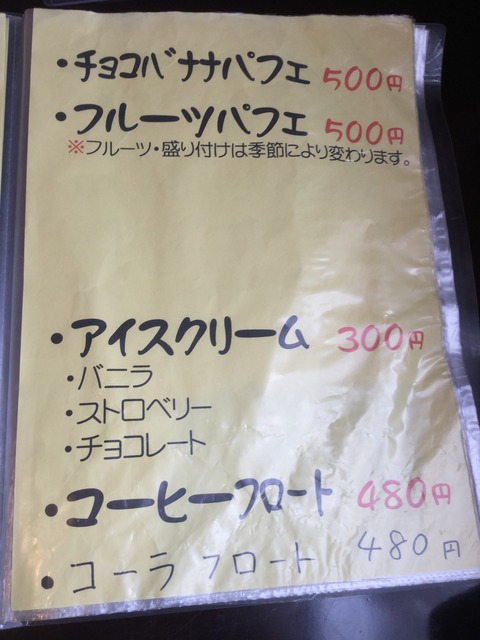 ・チョコバナナパフェ 500円
・フルーツパフェ 500円
※フルーツ・盛り付けは季節により変わります。
・アイスクリーム 300円
・バニラ
・ストロベリー
・チョコレート
・コーヒーフロート 480円
・コーラフロート 480円